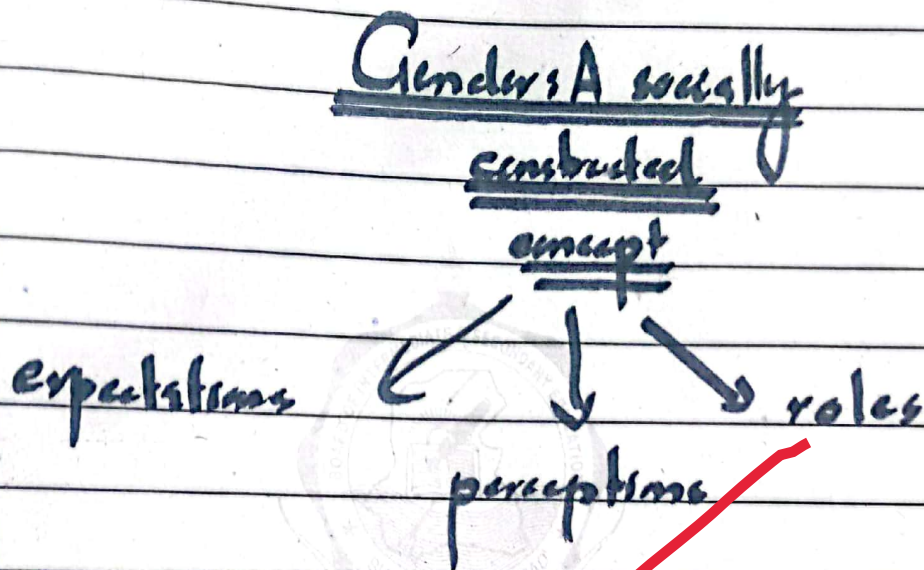 Gender: A socially
constructed
concept
expectations
roles
perceptions